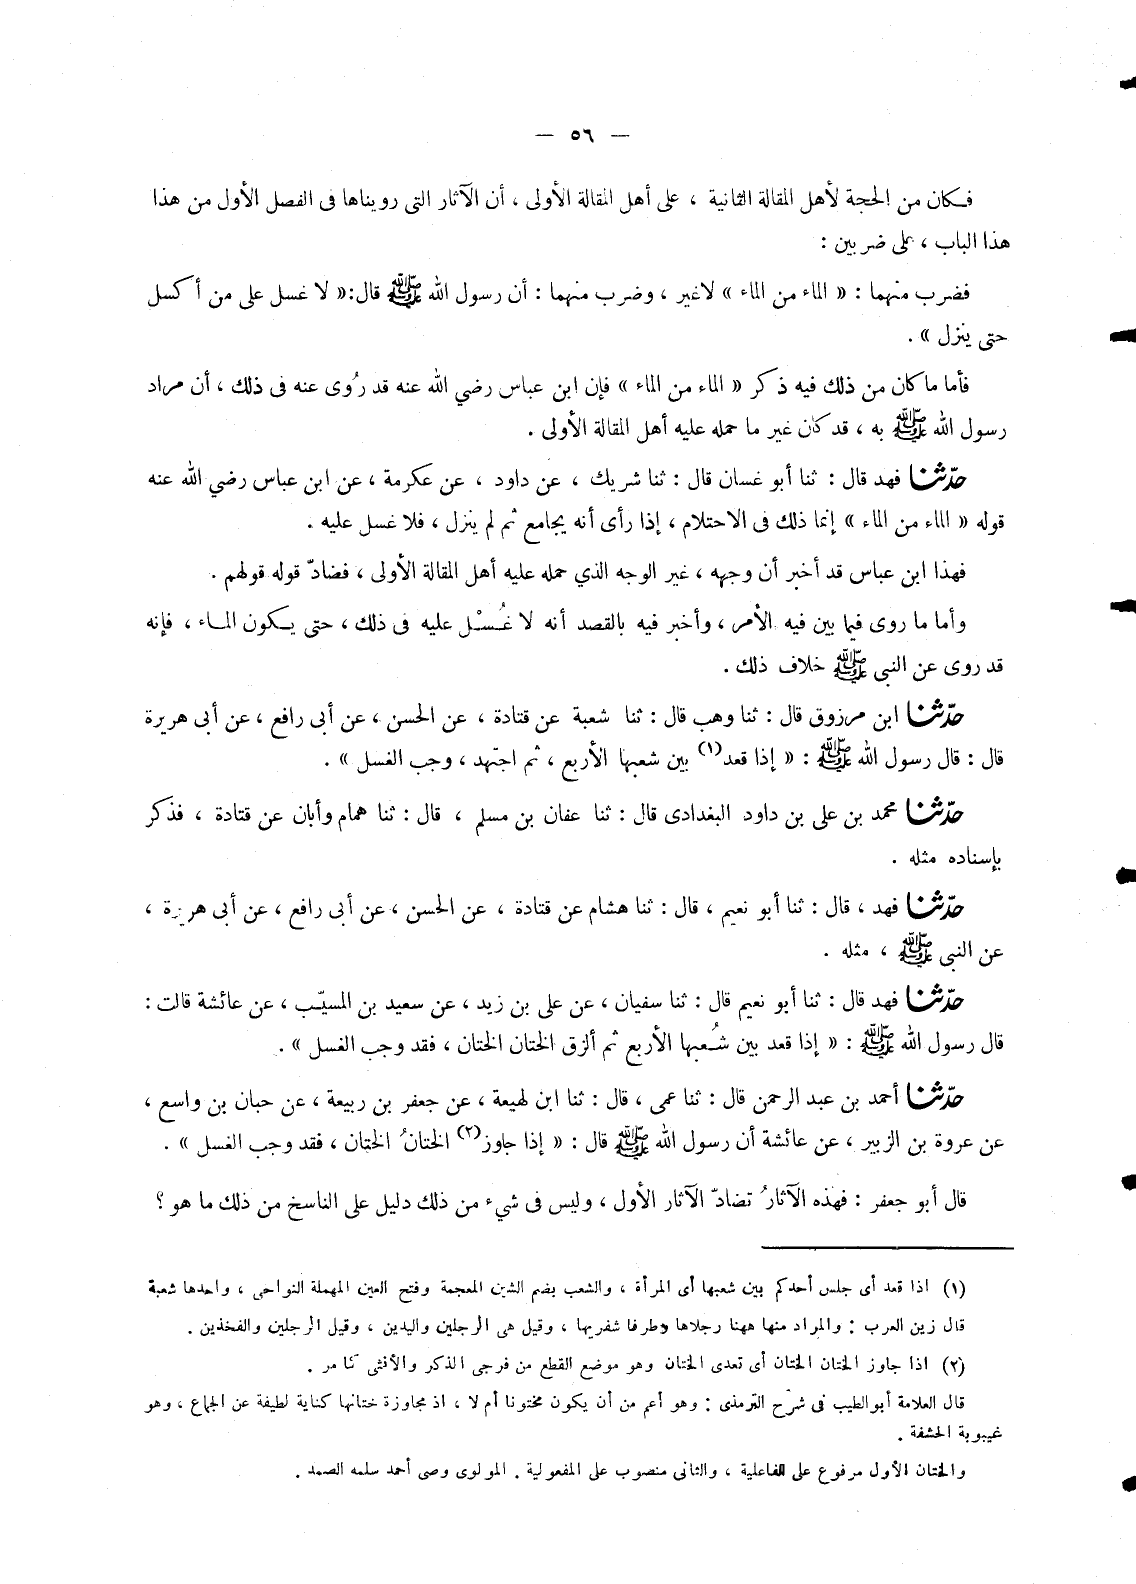 — ٥٦ —
فكان من الحجة لأهل المقالة الثانية ، على أهل المقالة الأولى ، أن الآثار التى رويناها فى الفصل الأول من هذا
هذا الباب ، على ضربين :
فضرب منهما : « الماء من الماء » لاغير ، وضرب منهما : أن رسول الله ﷺ قال: « لا غسل على من أكسل
حتى ينزل » .
فأما ما كان من ذلك فيه ذكر « الماء من الماء » فإن ابن عباس رضي الله عنه قد رُوى عنه فى ذلك ، أن مراد
رسول الله ﷺ به ، قد كان غير ما حمله عليه أهل المقالة الأولى .
حدّثنا فهد قال : ثنا أبو غسان قال : ثنا شريك ، عن داود ، عن عكرمة ، عن ابن عباس رضي الله عنه
قوله « الماء من الماء » إنما ذلك فى الاحتلام ، إذا رأى أنه يجامع ثم لم ينزل ، فلا غسل عليه .
فهذا ابن عباس قد أخبر أن وجهه ، غير الوجه الذي حمله عليه أهل المقالة الأولى ، فضادّ قوله قولهم .
وأما ما روى فيما بين فيه الأمر ، وأخبر فيه بالقصد أنه لا غُسْل عليه فى ذلك ، حتى يكون الماء ، فإنه
قد روى عن النبى ﷺ خلاف ذلك .
حدّثنا ابن مرزوق قال : ثنا وهب قال : ثنا شعبة عن قتادة ، عن الحسن ، عن أبى رافع ، عن أبى هريرة
قال : قال رسول الله ﷺ : « إذا قعد(١) بين شعبها الأربع ، ثم اجتهد ، وجب الغسل » .
حدّثنا محمد بن على بن داود البغدادى قال : ثنا عفان بن مسلم ، قال : ثنا همام وأبان عن قتادة ، فذكر
بإسناده مثله .
حدّثنا فهد ، قال : ثنا أبو نعيم ، قال : ثنا هشام عن قتادة ، عن الحسن ، عن أبى رافع ، عن أبى هريرة ،
عن النبى ﷺ ، مثله .
حدّثنا فهد قال : ثنا أبو نعيم قال : ثنا سفيان ، عن على بن زيد ، عن سعيد بن المسيّب ، عن عائشة قالت :
قال رسول الله ﷺ : « إذا قعد بين شُعبها الأربع ثم ألزق الختان الختان ، فقد وجب الغسل » .
حدّثنا أحمد بن عبد الرحمن قال : ثنا عمى ، قال : ثنا ابن لهيعة ، عن جعفر بن ربيعة ، عن حبان بن واسع ،
عن عروة بن الزبير ، عن عائشة أن رسول الله ﷺ قال : « إذا جاوز(٢) الختانُ الختان ، فقد وجب الغسل » .
قال أبو جعفر : فهذه الآثارُ تضادّ الآثار الأول ، وليس فى شيء من ذلك دليل على الناسخ من ذلك ما هو ؟
(١) اذا قعد أى جلس أحدكم بين شعبها أى المرأة ، والشعب بضم الشين المعجمة وفتح العين المهملة النواحى ، واحدها شعبة
قال زين العرب : والمراد منها ههنا رجلاها وطرفا شفريها ، وقيل هى الرجلين واليدين ، وقيل الرجلين والفخذين .
(٢) اذا جاوز الختان الختان أى تعدى الختان وهو موضع القطع من فرجى الذكر والأنثى كما مر .
قال العلامة أبوالطيب فى شرح الترمذى : وهو أعم من أن يكون مختونا أم لا ، اذ مجاوزة ختانها كناية لطيفة عن الجماع ، وهو
غيبوبة الحشفة .
والختان الأول مرفوع على الفاعلية ، والثانى منصوب على المفعولية . المولوى وصى أحمد سلمه الصمد .